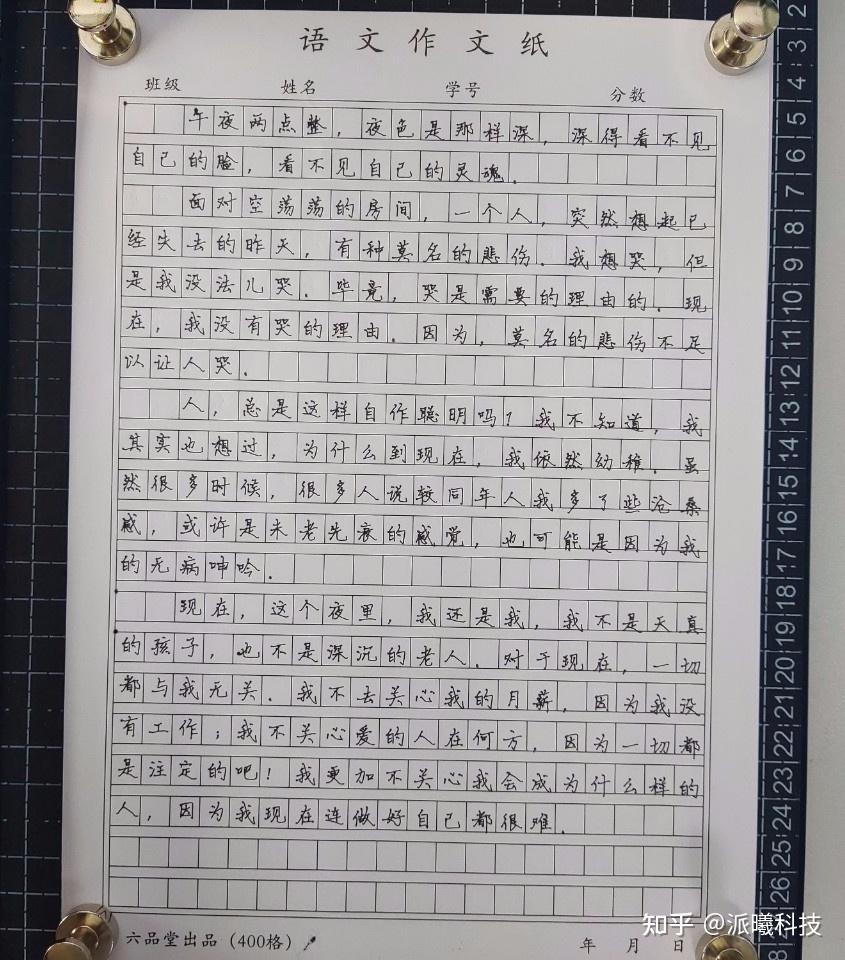 语文作文纸
班级 姓名 学号 分数
午夜两点整，夜色是那样深，深得看不见
自己的脸，看不见自己的灵魂.
面对空荡荡的房间，一个人，突然想起已
经失去的昨天，有种莫名的悲伤.我想哭，但
是我没法儿哭.毕竟，哭是需要的理由的.现
在，我没有哭的理由.因为，莫名的悲伤不足
以让人哭.
人，总是这样自作聪明吗？我不知道，我
其实也想过，为什么到现在，我依然幼稚.虽
然很多时候，很多人说较同年人我多了些沧桑
感，或许是未老先衰的感觉，也可能是因为我
的无病呻吟.
现在，这个夜里，我还是我，我不是天真
的孩子，也不是深沉的老人.对于现在，一切
都与我无关.我不去关心我的月薪，因为我没
有工作；我不关心爱的人在何方，因为一切都
是注定的吧！我更加不关心我会成为什么样的
人，因为我现在连做好自己都很难.
六品堂出品（400格） 年 月 日
知乎 @派曦科技
2
3
4
5
6
7
8
9
10
11
12
13
14
15
16
17
18
19
20
21
22
23
24
25
26